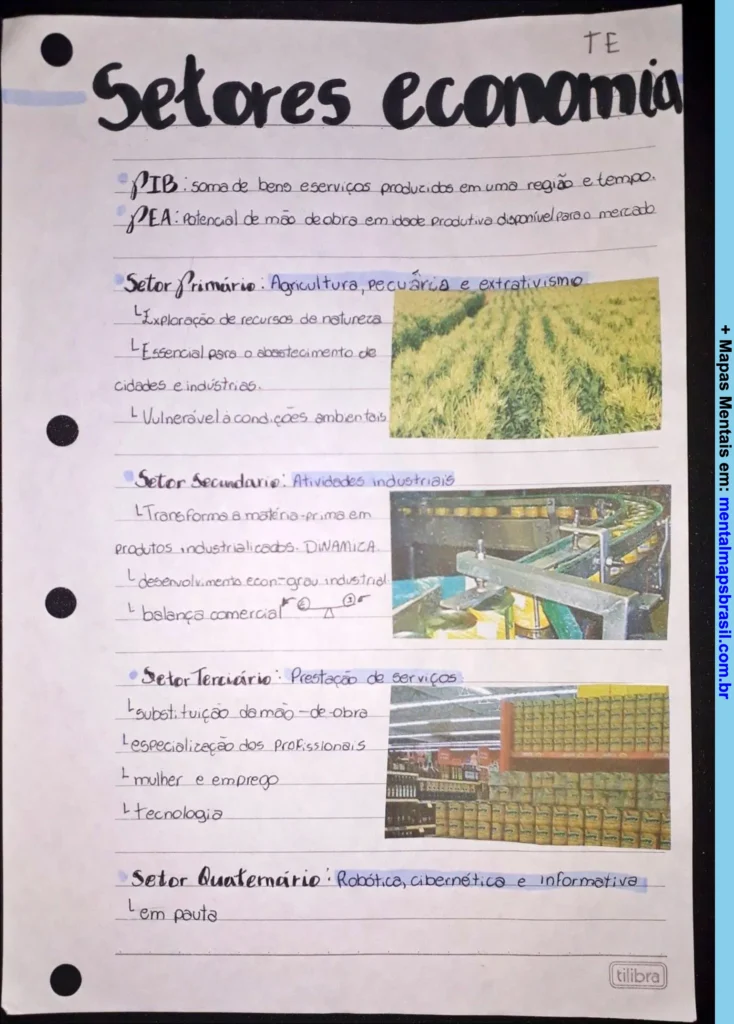 TE
Setores economia
PIB: soma de bens e serviços produzidos em uma região e tempo.
PEA: Potencial de mão de obra em idade produtiva disponível para o mercado
Setor Primário: Agricultura, pecuária e extrativismo
Exploração de recursos da natureza
Essencial para o abastecimento de
cidades e indústrias.
Vulnerável à condições ambientais
Setor Secundario: Atividades industriais
Transforma a matéria-prima em
produtos industrializados. DINAMICA.
desenvolvimento econ=grau industrial
balança comercial
Setor Terciário: Prestação de serviços
substituição da mão-de-obra
especialização dos profissionais
mulher e emprego
tecnologia
Setor Quaternário: Robótica, cibernética e informativa
em pauta
tilibra
+ Mapas Mentais em: mentalmapsbrasil.com.br